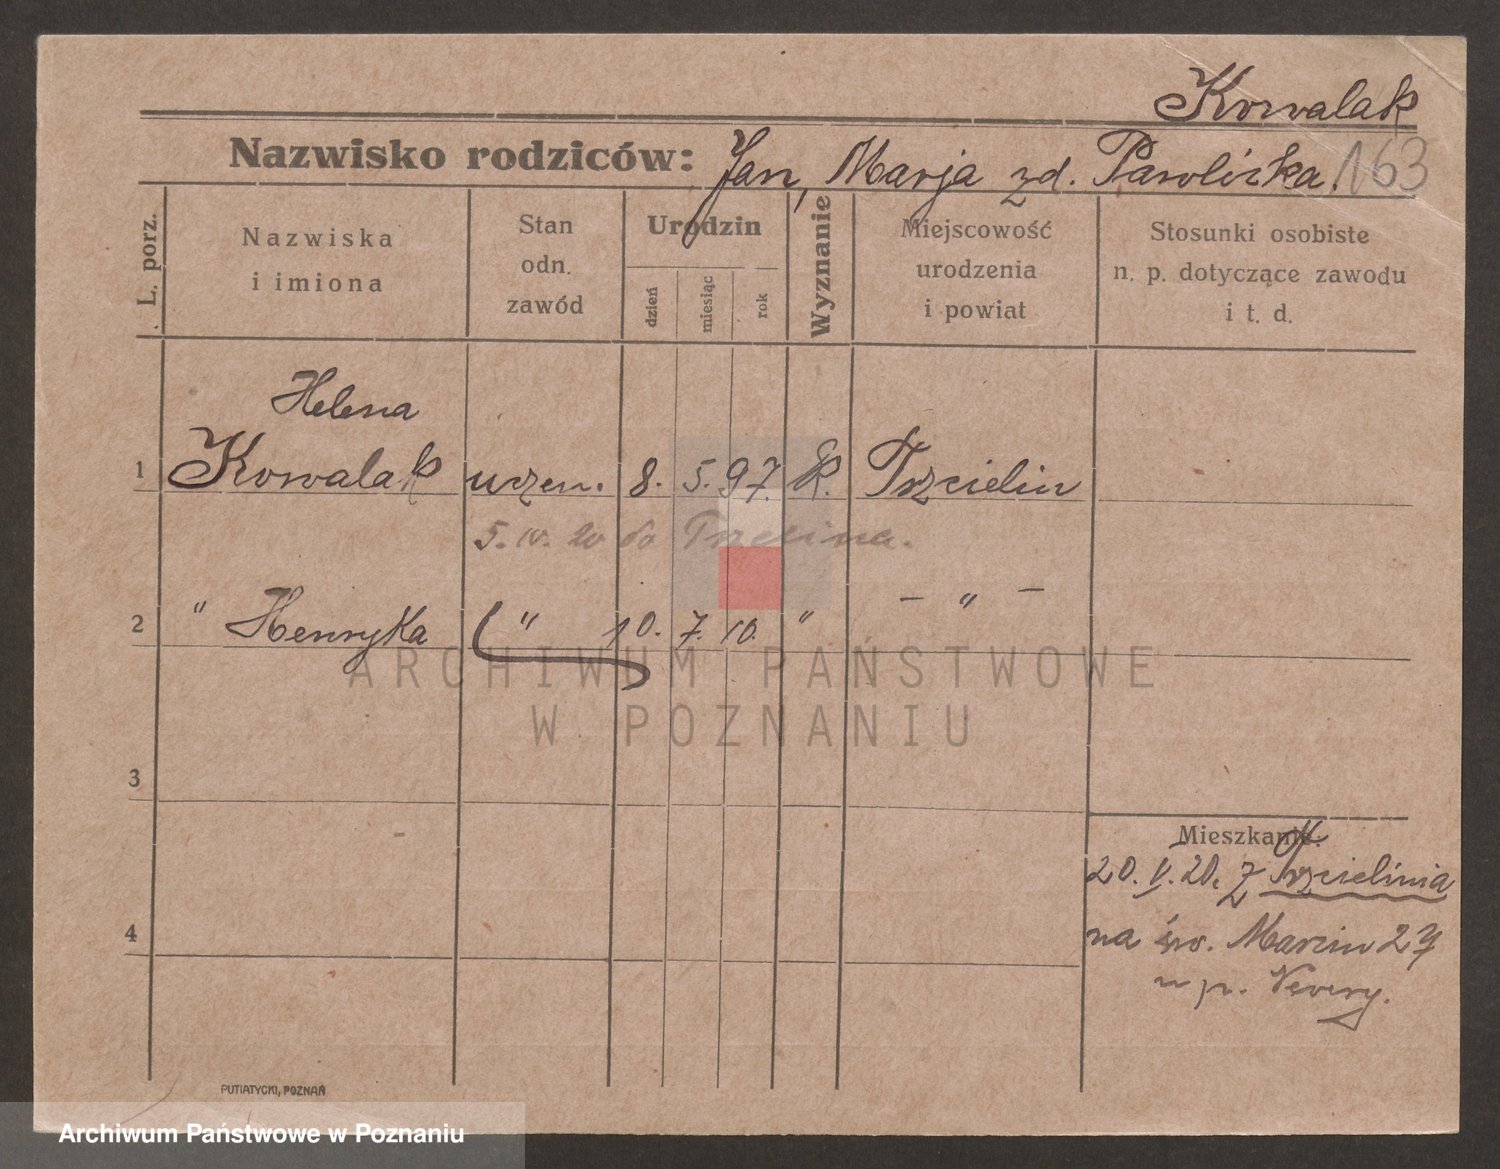 Kowalak
Nazwisko rodziców: Jan, Marja zd. Pawlicka. 163
L. porz.
Nazwiska
i imiona
Stan
odn.
zawód
Urodzin
dzień
miesiąc
rok
Wyznanie
Miejscowość
urodzenia
i powiat
Stosunki osobiste
n. p. dotyczące zawodu
i t. d.
Helena
1 Kowalak uczen. 8. 5. 97. K. Trzcielin
5. IV. 20 do Trzcielina.
2 " Henryka " 10. 7. 10. " — " —
ARCHIWUM PAŃSTWOWE
W POZNANIU
3
Mieszkanie:
20. V. 20. z Trzcielinia
4
na św. Marcin 27
u p.
PUTIATYCKI, POZNAŃ
Archiwum Państwowe w Poznaniu